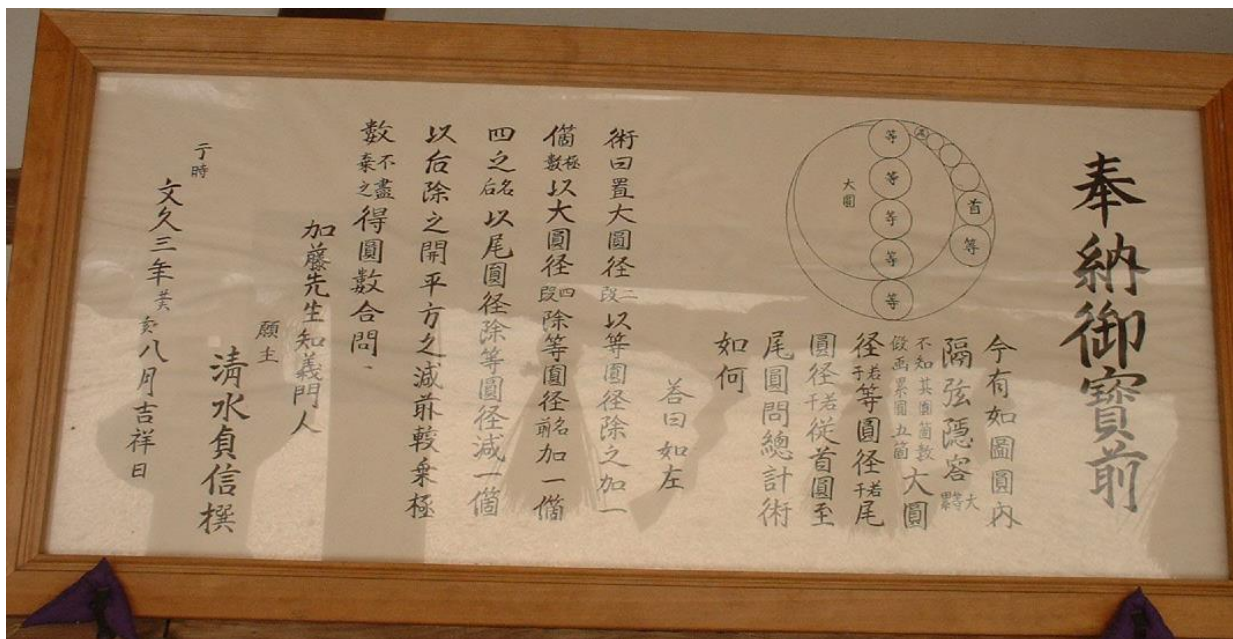 奉納御寶前
今有如圖圓内
隔弦隠容大等累
不知其圓箇數仮画累圓五箇大圓
径若干等圓径若干尾
圓径若干従首圓至
尾圓問總計術
如何
答曰如左
等
等
等
等
等
大圓
尾
首
等
術曰置大圓径二段以等圓径除之加一
箇極數以大圓径四段除等圓径名前加一箇
四之名后以尾圓径除等圓径減一箇
以后除之開平方之減前較乗極
數不盡棄之得圓數合問
加藤先生知義門人
願主
清水貞信撰
于時
文久三年癸亥八月吉祥日